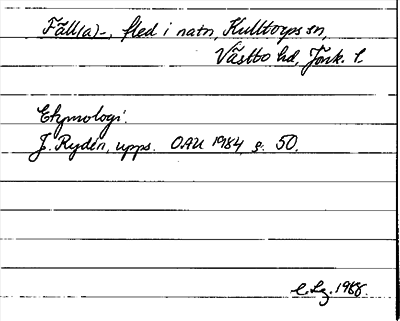 Fäll(a)-, fled i natn, Kulltorps sn,
Västbo hd, Jönk. l.
Etymologi:
J. Rydén, upps. OAU 1984, s. 50.
1988.